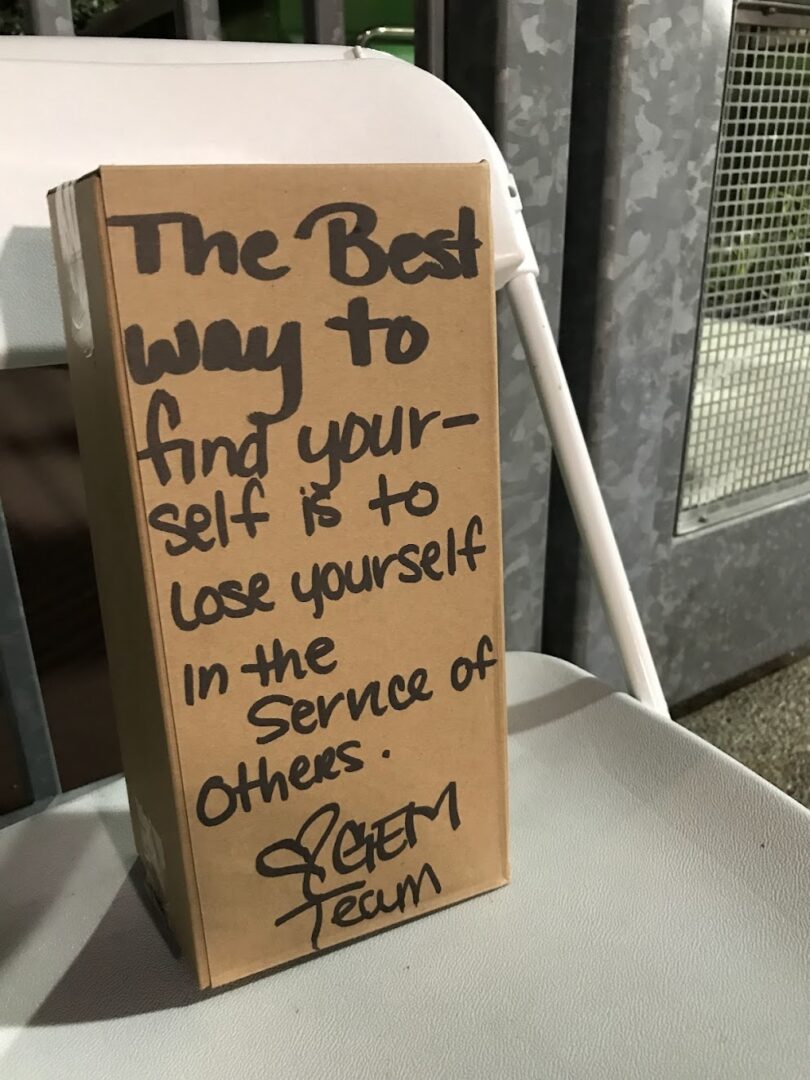 The Best
way to
find your-
self is to
Lose yourself
in the
Service of
Others.
♡ GEM
Team